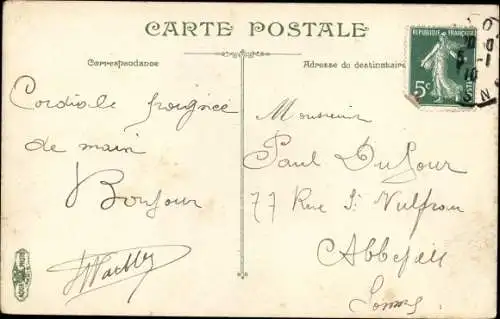 CARTE POSTALE
Correspondance
Adresse du destinataire
RÉPUBLIQUE FRANÇAISE
5c
Cordiale poignée
de main
Bonjour
Monsieur
Paul Dufour
77 Rue St Vulfran
Abbeville
Somme